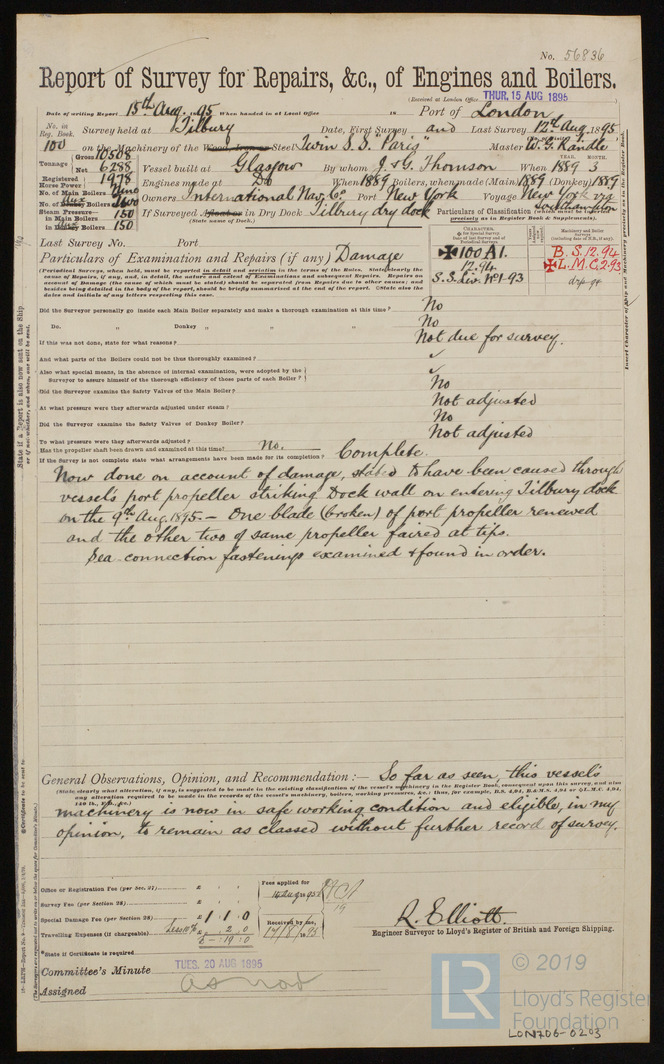 No. 56836
Report of Survey for Repairs, &c., of Engines and Boilers.
(Received at London Office THUR. 15 AUG 1895
Date of writing Report 15th Aug. 1895 When handed in at Local Office 18 Port of London
No. in Reg. Book. Survey held at Tilbury Date, First Survey and Last Survey 12th Aug. 1895
100 on the Machinery of the Wood, Iron or Steel Twin S.S. "Paris" Master W. G. Randle
Tonnage Gross 10508
Net 6288
Vessel built at Glasgow By whom J. & G. Thomson When 1889 3
YEAR. MONTH.
Registered Horse Power 1978 Engines made at Do When 1889 Boilers, when made (Main) 1889 (Donkey) 1889
No. of Main Boilers Nine Owners International Nav. Co. Port New York Voyage New York via Southampton
No. of Aux. Donkey Boilers Two
Steam Pressure—
in Main Boilers 150
in Donkey Boilers 150
If Surveyed Afloat or in Dry Dock Tilbury dry dock
(State name of Dock.)
Particulars of Classification (which must be inserted precisely as in Register Book & Supplements).
Last Survey No. Port
CHARACTER.
✠100A1.
12.94
S.S. Liv. No1-93
B.S. 12.94
✠L.M.C. 2.93
Particulars of Examination and Repairs (if any) Damage
(Periodical Surveys, when held, must be reported in detail and seriatim in the terms of the Rules. State clearly the
causes of Repairs, if any, and, in detail, the nature and extent of Examinations and subsequent Repairs. Repairs on
account of Damage (the cause of which must be stated) should be separated from Repairs due to other causes; and
besides being detailed in the body of the report, should be briefly summarised at the end of the report. State also the
dates and initials of any letters respecting this case.
Did the Surveyor personally go inside each Main Boiler separately and make a thorough examination at this time? No
Do. " Donkey " " " No
If this was not done, state for what reasons? Not due for survey.
And what parts of the Boilers could not be thus thoroughly examined? ✓
Also what special means, in the absence of internal examination, were adopted by the
Surveyor to assure himself of the thorough efficiency of those parts of each Boiler? ✓
Did the Surveyor examine the Safety Valves of the Main Boilers? No
At what pressure were they afterwards adjusted under steam? Not adjusted
Did the Surveyor examine the Safety Valves of Donkey Boiler? No
To what pressure were they afterwards adjusted? Not adjusted
Has the propeller shaft been drawn and examined at this time? No.
If the Survey is not complete state what arrangements have been made for its completion? Complete.
Now done on account of damage, stated to have been caused through
vessel's port propeller striking Dock wall on entering Tilbury dock
on the 9th Aug. 1895.— One blade (broken) of port propeller renewed
and the other two of same propeller faired at tips.
Sea connection fastenings examined & found in order.
General Observations, Opinion, and Recommendation:— So far as seen, this vessel's
(State clearly what alteration, if any, is suggested to be made in the existing classification of the vessel's machinery in the Register Book, consequent upon this survey, and also
any alteration required to be made in the records of the vessel's machinery, boilers, working pressures, &c.: thus, for example, B.S. 4,94, B.&M.S. 4,94 or ✠L.M.C. 4,94,
machinery is now in safe working condition and eligible, in my
opinion, to remain as classed without further record of survey.
Office or Registration Fee (per Sec. 27) £
Survey Fee (per Section 28) £
Special Damage Fee (per Section 28) £ 1 : 1 : 0
Travelling Expenses (if chargeable) Less 10% £ : 2 : 0
£ — : 19 : 0
Fees applied for
14 Aug 1895
Received by me,
17/8/1895
R. Elliott.
Engineer Surveyor to Lloyd's Register of British and Foreign Shipping.
State if Certificate is required
Committee's Minute TUES. 20 AUG 1895
Assigned as now
© 2019
LR
Lloyd's Register
Foundation
LON706-0203